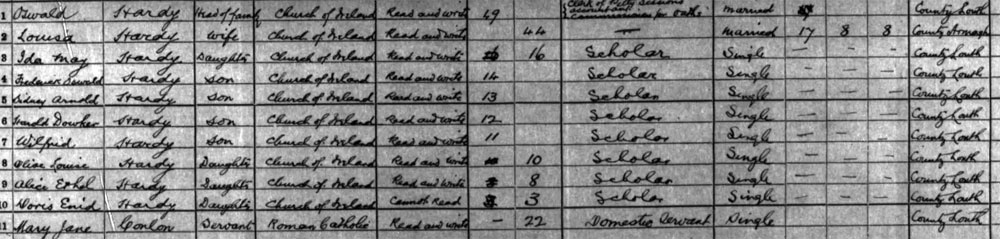 1 Oswald Hardy Head of family Church of Ireland Read and write 49 Clerk of Petty Sessions accountant Commissioner for oaths Married County Louth
2 Louisa Hardy Wife Church of Ireland Read and write 44 — Married 17 8 8 County Armagh
3 Ida May Hardy Daughter Church of Ireland Read and write 16 Scholar Single — — — County Louth
4 Frederick Oswald Hardy Son Church of Ireland Read and write 14 Scholar Single — — — County Louth
5 Sidney Arnold Hardy Son Church of Ireland Read and write 13 Scholar Single — — — County Louth
6 Harold Dowker Hardy Son Church of Ireland Read and write 12 Scholar Single — — — County Louth
7 Wilfrid Hardy Son Church of Ireland Read and write 11 Scholar Single — — — County Louth
8 Hardy Daughter Church of Ireland Read and write 10 Scholar Single — — — County Louth
9 Alice Ethel Hardy Daughter Church of Ireland Read and write 8 Scholar Single — — — County Louth
10 Doris Enid Hardy Daughter Church of Ireland Cannot Read 3 Scholar Single — — — County Louth
11 Mary Jane Conlon Servant Roman Catholic Read and write — 22 Domestic Servant Single County Louth